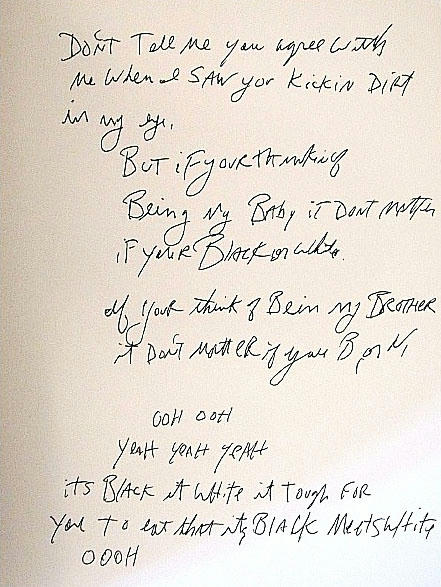 DON'T Tell Me you agree with
me when I SAW you Kickin DIRT
in my eye.
BUT iF your thinking
Being my BABY iT DonT matter
iF your BlACK or white.
If your think of Bein my BROTHER
it Don't MATTER if your B or W,
OOH OOH
YeaH YeaH YeAH
iTs BlACK iT White iT Tough FOR
you To eat that its BlACK Meets White
OOOH